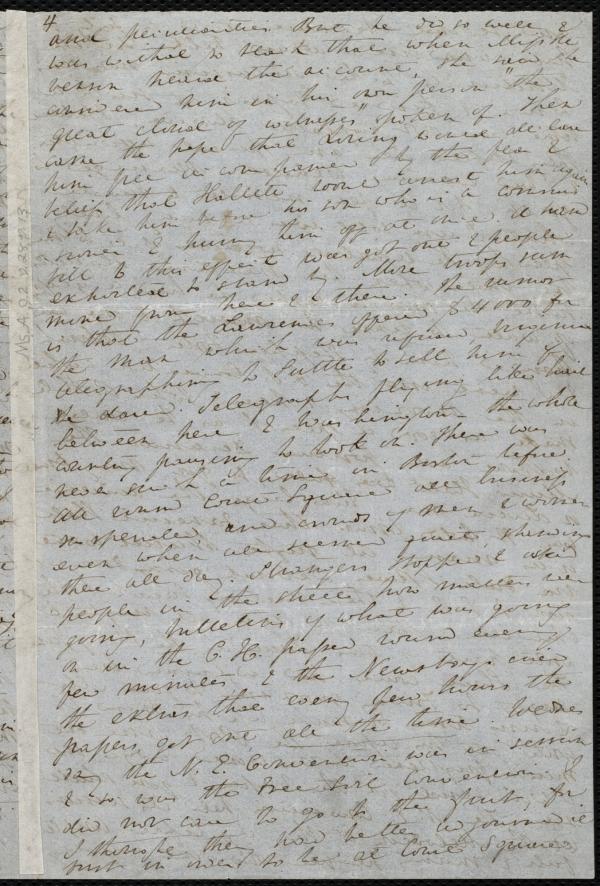 4
and peculiarities. But he did so well &
was withal so that when Miss
heard the account, she said she
him in his own person "the
great cloud of witnesses" spoken of. Then
came the hope that Loring would declare
him free accompanied by the fear &
belief that Hallett would arrest him again
& take him before his son who is a commis
sioner & hurry him off at once. A hand
bill to this effect was got out & people
exhorted to stand by. More troops sum
moned from here & there. The rumor
is that the Lawrences offered $4000 for
the man which was refused, Virginia
telegraphing to Suttle to sell him
Telegraphs flying like hail
between here & Washington the whole
country pausing to look on. There was
never such a time in Boston before
All round Court Square all business
suspended, and crowds of men & women
even when all seemed quiet, standing
there all day. Strangers stopped & asked
people in the street how matters were
going, bulletins of what was going
on in the C. H. passed round every
few minutes & the Newsboys cried
the extras there every few hours the
papers got out all the time. Wednes
day the N. E. Convention was in session
& so was the Free Soil Convention. I
did not care to go to the first, for
I thought they had better adjourned it
just in order to be at Court Square
MS.A.9.2